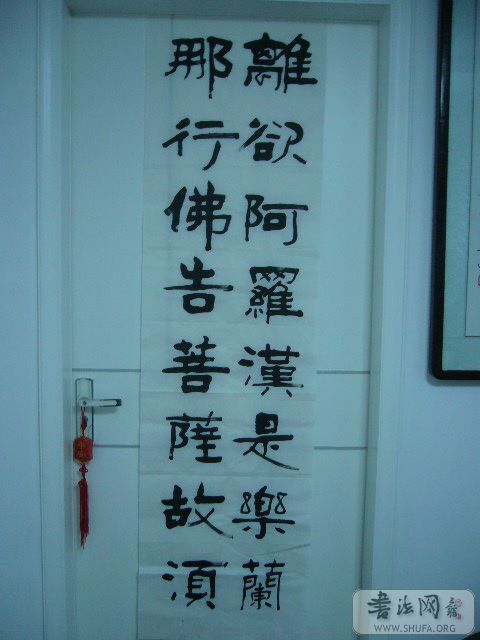 離欲阿羅漢是樂蘭
那行佛告菩薩故須
書法网
WWW.SHUFA.ORG